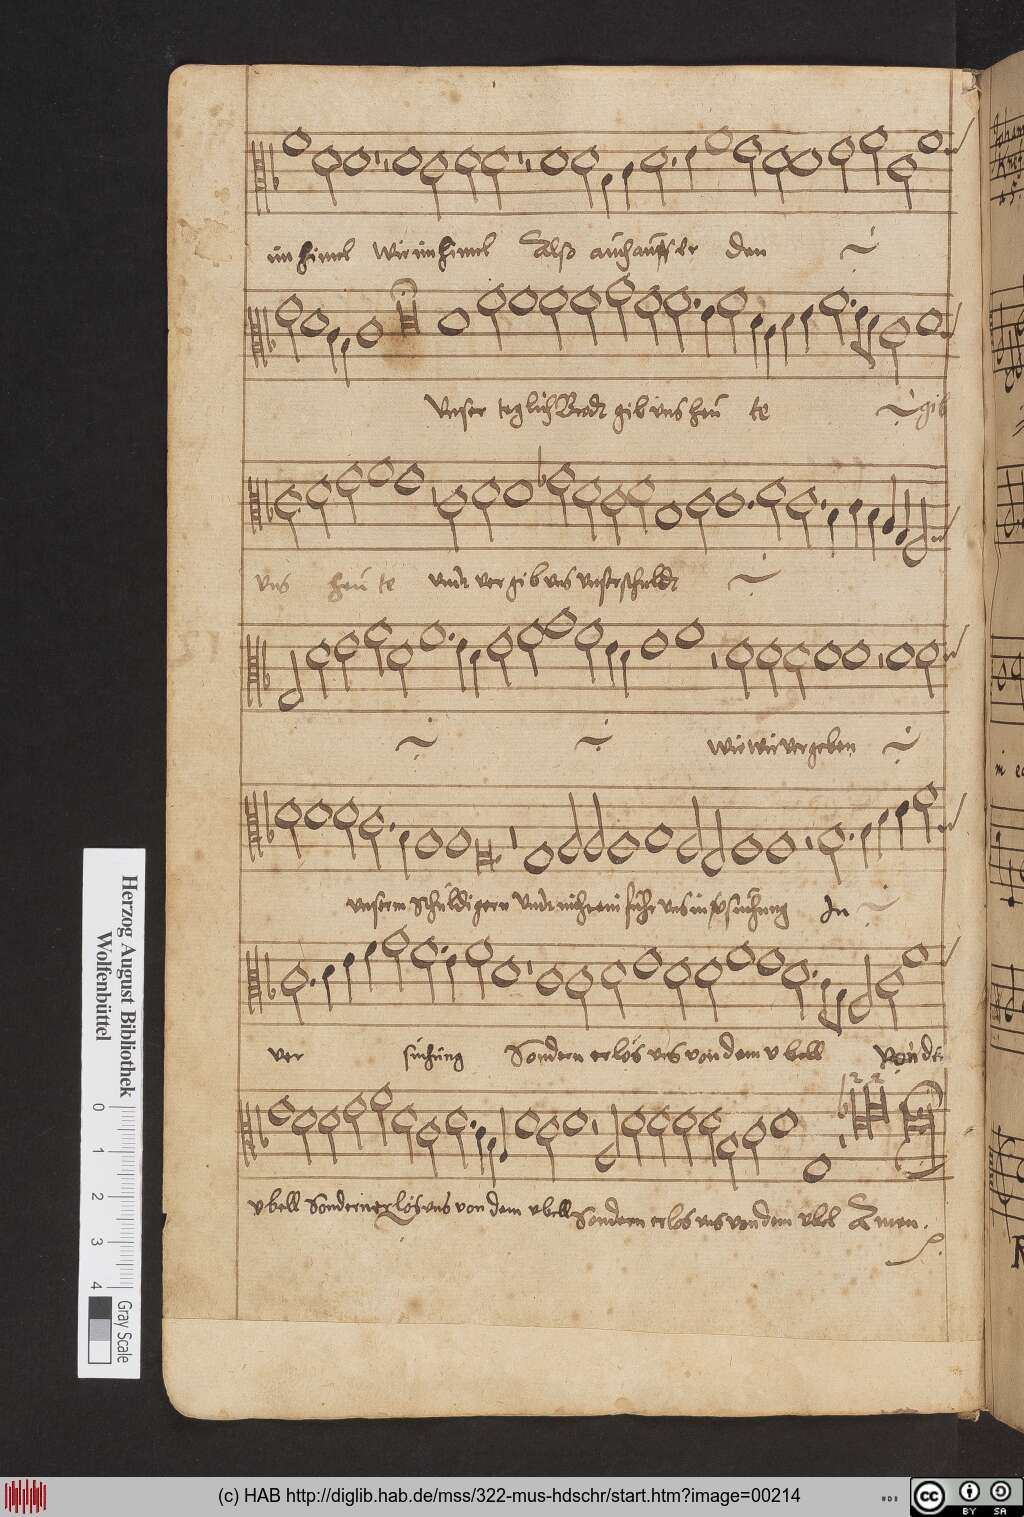 im himel wie im himel Also auch auff er den
Vnser teglich Brodt gib vns heu te gib
vns heu te vndt vergib vns vnser schuldt
wie wir vergeben
vnsern schuldigern Vndt nicht ein führ vns in suchung In
ver suchung Sondern erlös vns von dem vbell Von de
vbell Sondern erlös vns von dem vbell Sondern erlos vns von dem vbel Amen.
Herzog August Bibliothek
Wolfenbüttel
0 1 2 3 4
Gray Scale
(c) HAB http://diglib.hab.de/mss/322-mus-hdschr/start.htm?image=00214
cc
BY SA